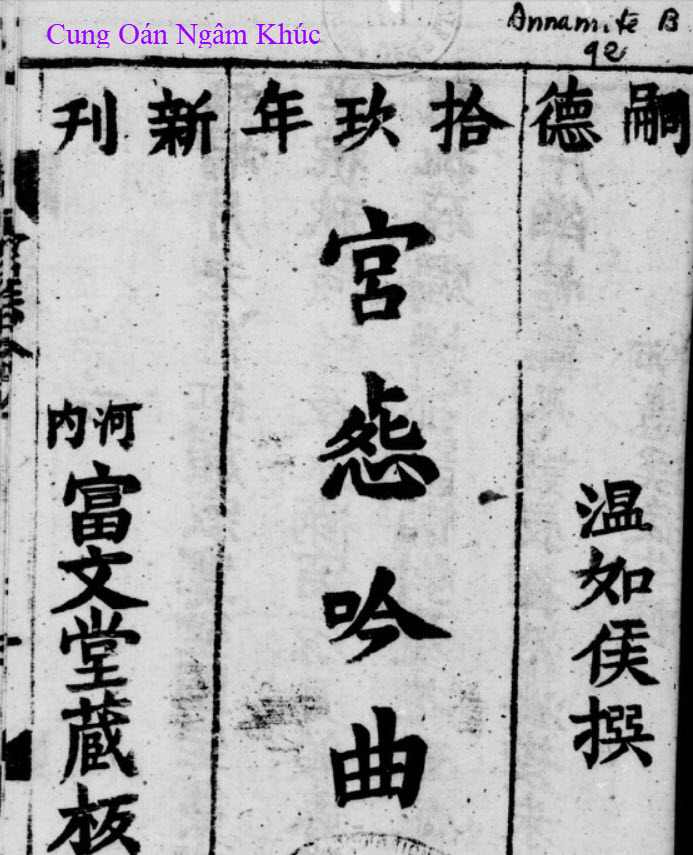 Cung Oán Ngâm Khúc
Annamite B
92
嗣德拾玖年新刊
溫如侯撰
宮怨吟曲
河内
富文堂蔵板